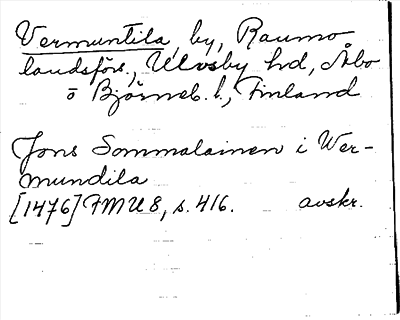 Vermuntila, by, Raumo
landsförs., Ulvsby hd, Åbo
o Björneb. l., Finland
Jons Sommalainen i Wer-
mundila
[1476] FMU 8, s. 416. avskr.